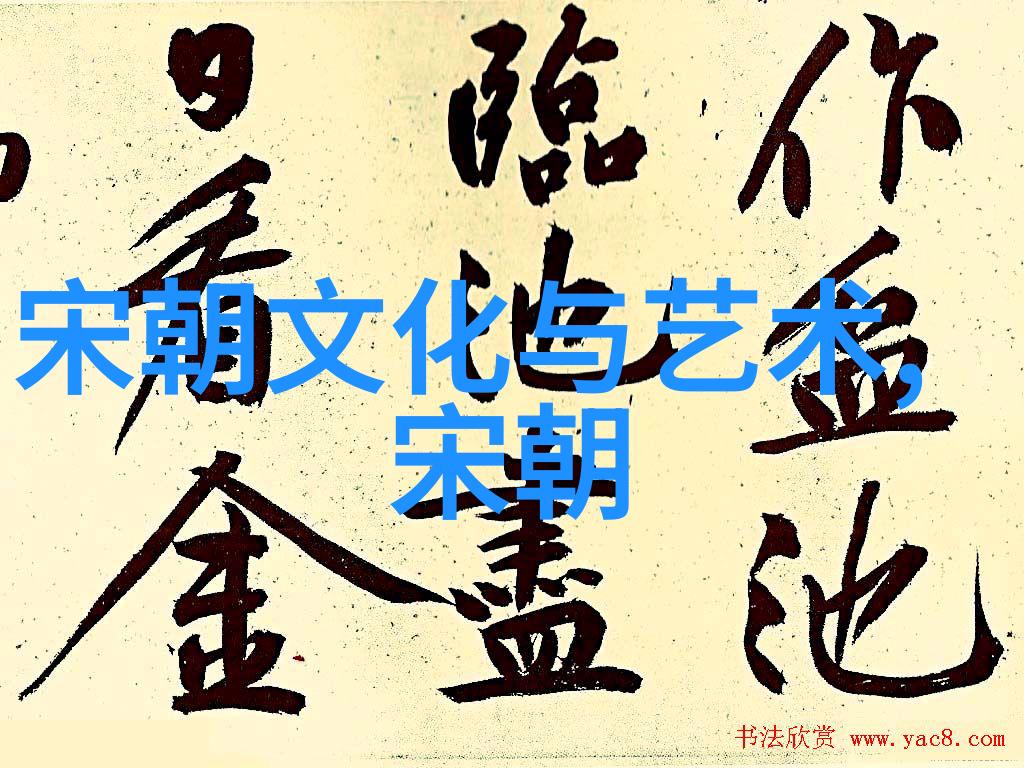 作盆池
臨池盡
日看金
宋朝文化与艺术,
宋朝
书法欣赏 www.yac8.com